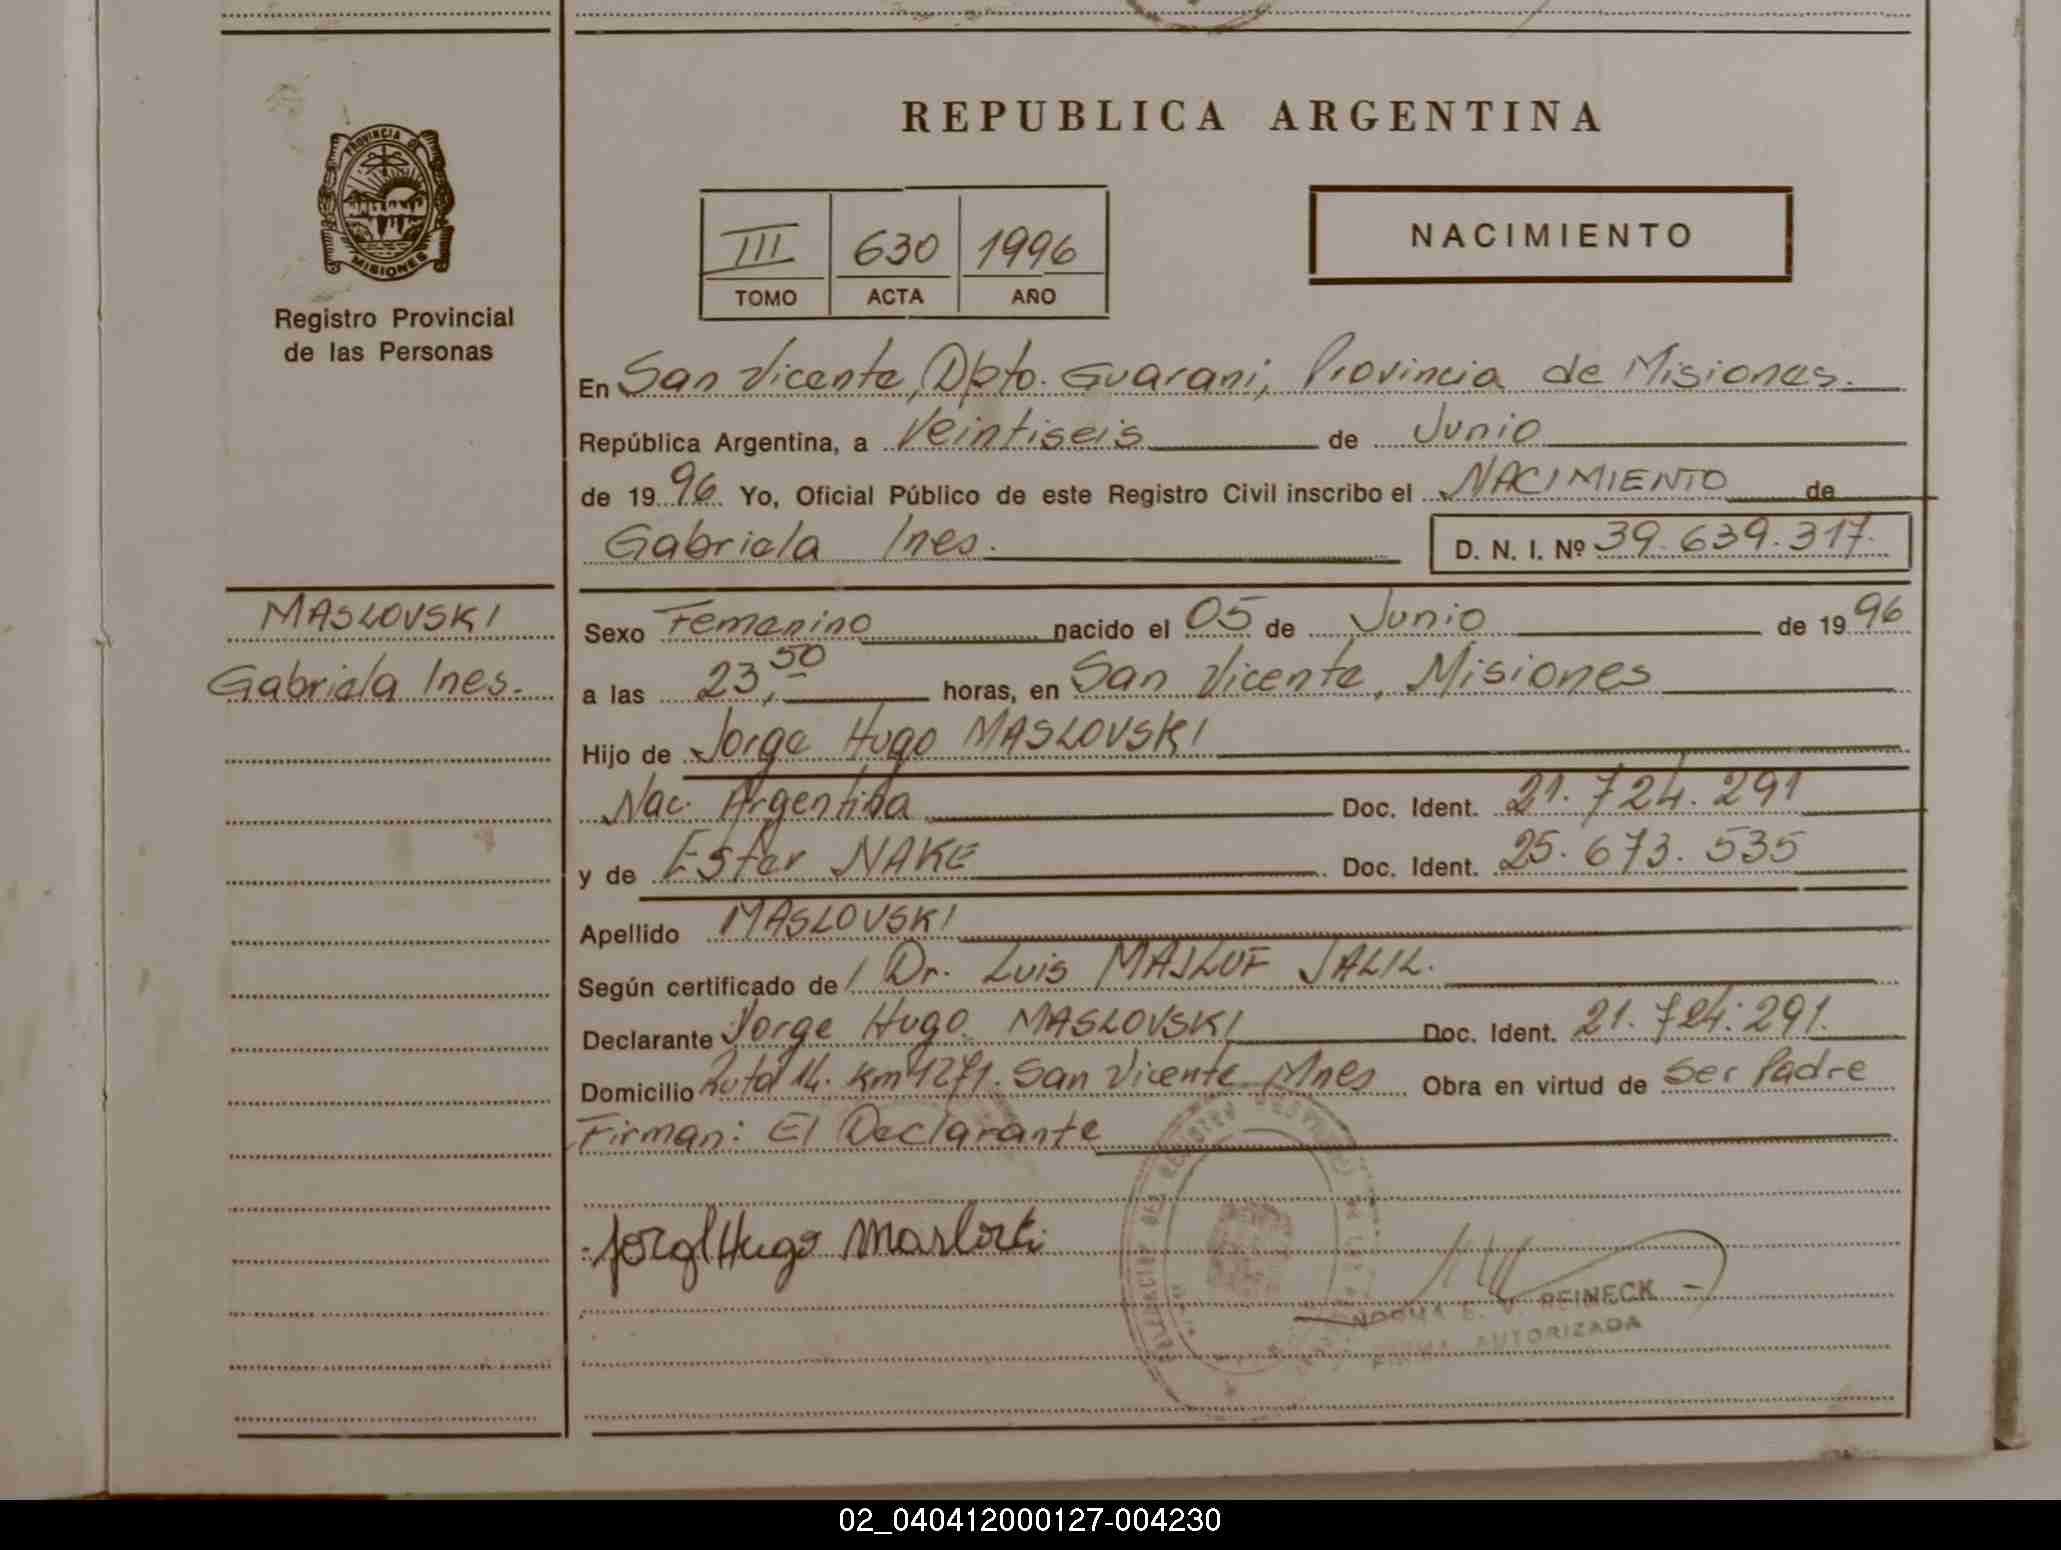 PROVINCIA DE
MISIONES
Registro Provincial
de las Personas
REPUBLICA ARGENTINA
III 630 1996
TOMO ACTA AÑO
NACIMIENTO
En San Vicente, Dpto. Guarani, Provincia de Misiones.
República Argentina, a Veintiseis de Junio
de 1996. Yo, Oficial Público de este Registro Civil inscribo el NACIMIENTO de
Gabriela Ines. D. N. I. Nº 39.639.317.
MASLOVSKI
Gabriela Ines.
Sexo Femenino nacido el 05 de Junio de 1996
a las 23,50 horas, en San Vicente, Misiones
Hijo de Jorge Hugo MASLOVSKI
Nac. Argentina Doc. Ident. 21.724.291
y de Ester NAKE Doc. Ident. 25.673.535
Apellido MASLOVSKI
Según certificado de Dr. Luis MAJLUF JALIL.
Declarante Jorge Hugo MASLOVSKI Doc. Ident. 21.724.291.
Domicilio Ruta 14. Km 1271. San Vicente Mnes Obra en virtud de Ser Padre
Firman: El Declarante
Jorge Hugo Maslovski
NORMA E. V. REINECK
FIRMA AUTORIZADA
02_040412000127-004230